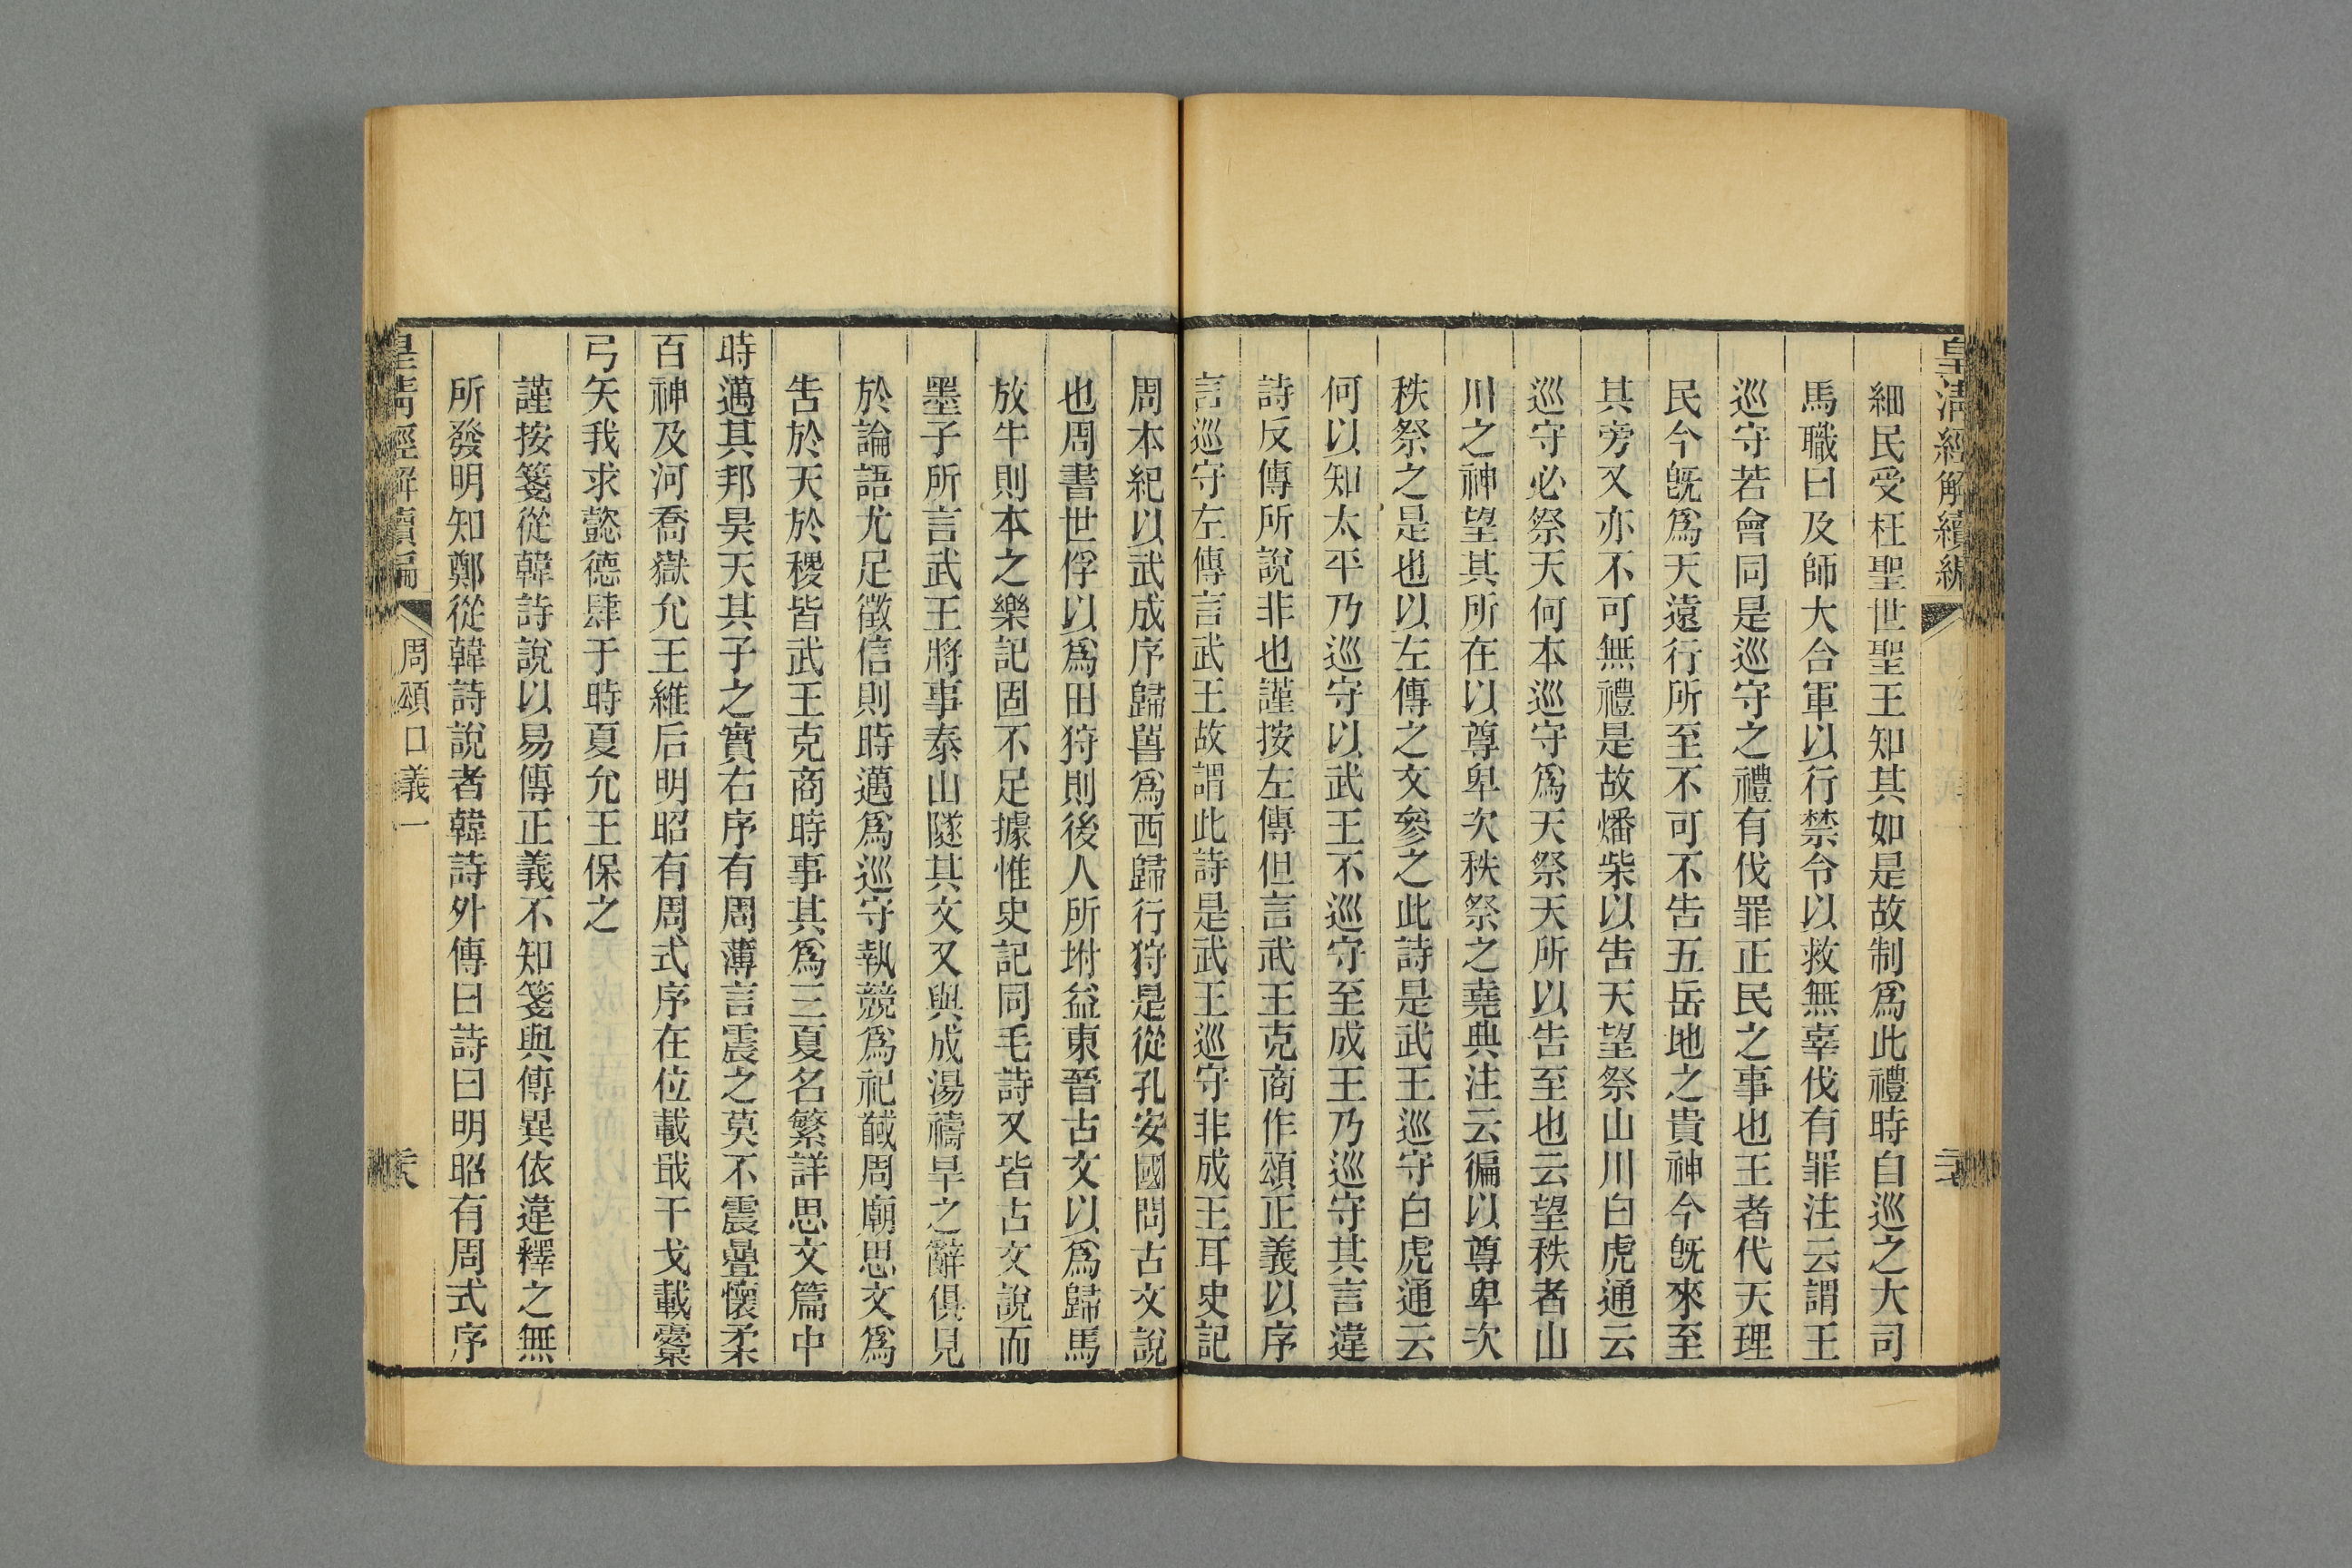 皇清經解續編
細民受枉聖世聖王知其如是故制爲此禮時自巡之大司
馬職曰及師大合軍以行禁令以救無辜伐有罪注云謂王
巡守若會同是巡守之禮有伐罪正民之事也王者代天理
民今旣爲天遠行所至不可不告五岳地之貴神今旣來至
其旁又亦不可無禮是故燔柴以告天望祭山川白虎通云
巡守必祭天何本巡守爲天祭天所以告至也云望秩者山
川之神望其所在以尊卑次秩祭之堯典注云徧以尊卑次
秩祭之是也以左傳之文參之此詩是武王巡守白虎通云
何以知太平乃巡守以武王不巡守至成王乃巡守其言違
詩反傳所說非也謹按左傳但言武王克商作頌正義以序
言巡守左傳言武王故謂此詩是武王巡守非成王耳史記
周本紀以武成序歸嘼爲西歸行狩是從孔安國問古文說
也周書世俘以爲田狩則後人所坿益東晉古文以爲歸馬
放牛則本之樂記固不足據惟史記同毛詩又皆古文說而
墨子所言武王將事泰山隧其文又與成湯禱旱之辭俱見
於論語尤足徵信則時邁爲巡守執競爲祀馘周廟思文爲
告於天於稷皆武王克商時事其爲三夏名繁詳思文篇中
時邁其邦昊天其子之實右序有周薄言震之莫不震疊懷柔
百神及河喬嶽允王維后明昭有周式序在位載戢干戈載櫜
弓矢我求懿德肆于時夏允王保之
謹按箋從韓詩說以易傳正義不知箋與傳異依違釋之無
所發明知鄭從韓詩說者韓詩外傳曰詩曰明昭有周式序
皇清經解續編
周頌口義一